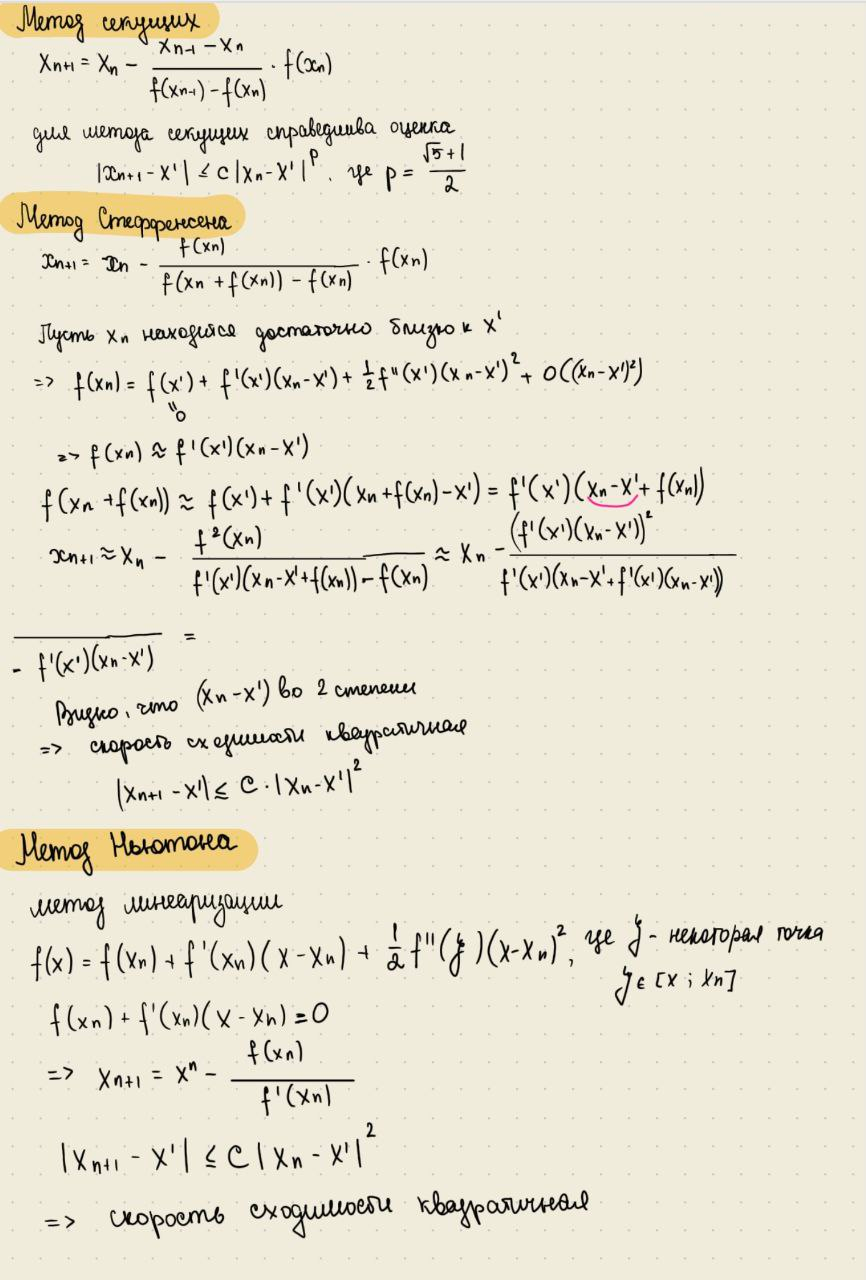 Метод секущих
x_{n+1} = x_n - \frac{x_{n-1} - x_n}{f(x_{n-1}) - f(x_n)} · f(x_n)
для метода секущих справедлива оценка
|x_{n+1} - x'| ≤ c |x_n - x'|^p, где p = \frac{√5+1}{2}
Метод Стеффенсена
x_{n+1} = x_n - \frac{f(x_n)}{f(x_n + f(x_n)) - f(x_n)} · f(x_n)
Пусть x_n находится достаточно близко к x'
=> f(x_n) = f(x') + f'(x')(x_n - x') + \frac{1}{2} f''(x')(x_n - x')^2 + O((x_n - x')^2)
"0
=> f(x_n) ≈ f'(x')(x_n - x')
f(x_n + f(x_n)) ≈ f(x') + f'(x')(x_n + f(x_n) - x') = f'(x')(x_n - x' + f(x_n))
x_{n+1} ≈ x_n - \frac{f^2(x_n)}{f'(x')(x_n - x' + f(x_n)) - f(x_n)} ≈ x_n - \frac{(f'(x')(x_n - x'))^2}{f'(x')(x_n - x' + f'(x')(x_n - x'))}
- f'(x')(x_n - x') =
Видно, что (x_n - x') во 2 степени
=> скорость сходимости квадратичная
|x_{n+1} - x'| ≤ C · |x_n - x'|^2
Метод Ньютона
метод линеаризации
f(x) = f(x_n) + f'(x_n)(x - x_n) + \frac{1}{2} f''(ξ)(x - x_n)^2, где ξ - некоторая точка
ξ ∈ [x ; x_n]
f(x_n) + f'(x_n)(x - x_n) = 0
=> x_{n+1} = x^n - \frac{f(x_n)}{f'(x_n)}
|x_{n+1} - x'| ≤ C |x_n - x'|^2
=> скорость сходимости квадратичная